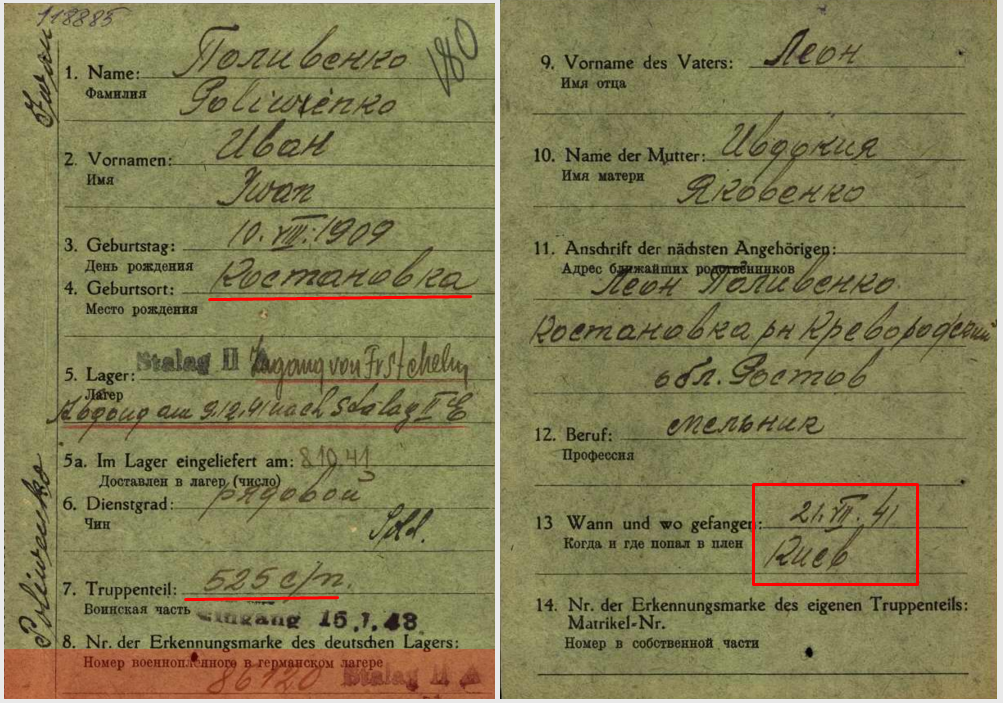 118885
Iwan
180
1. Name: Поливенко
Фамилия
Poliwienko
2. Vornamen: Иван
Имя
Iwan
3. Geburtstag: 10. VIII. 1909
День рождения
4. Geburtsort: Костановка
Место рождения
Stalag II
5. Lager: von
Лагер
Abgang am 9.12.41 nach Stalag II E
5a. Im Lager eingeliefert am: 8.10.41
Доставлен в лагер (число)
6. Dienstgrad: рядовой
Чин
Sold.
7. Truppenteil: 525 с/п.
Воинская часть
Eingang 15.1.43
8. Nr. der Erkennungsmarke des deutschen Lagers:
Номер военнопленного в германском лагере
86120 Stalag II A
Poliwenko
9. Vorname des Vaters: Леон
Имя отца
10. Name der Mutter: Ивдокия
Имя матери
Яковенко
11. Anschrift der nächsten Angehörigen:
Адрес ближайших родственников
Леон Поливенко
Костановка рн
обл. Ростов
12. Beruf: мельник
Профессия
13 Wann und wo gefangen: 21. VII. 41
Когда и где попал в плен
Киев
14. Nr. der Erkennungsmarke des eigenen Truppenteils:
Matrikel-Nr.
Номер в собственной части